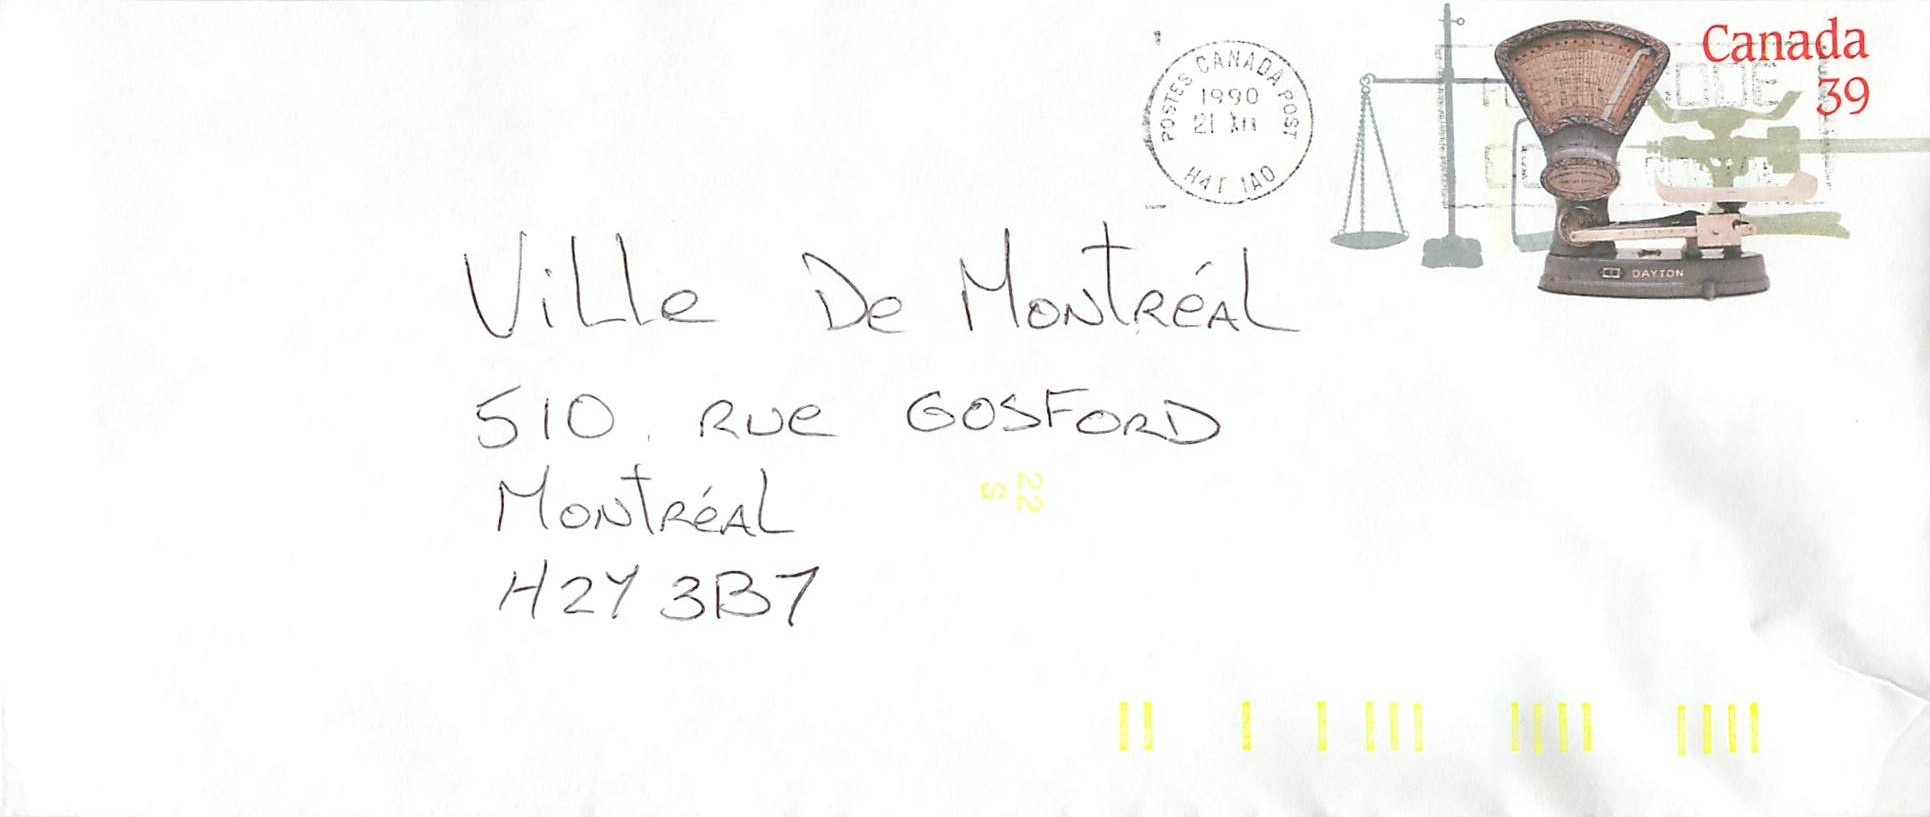 POSTES CANADA POST
1990
21 XII
H4T 1A0
Canada
39
DAYTON
Ville De Montréal
510, rue GOSFORD
Montréal
H2Y 3B7
22
S